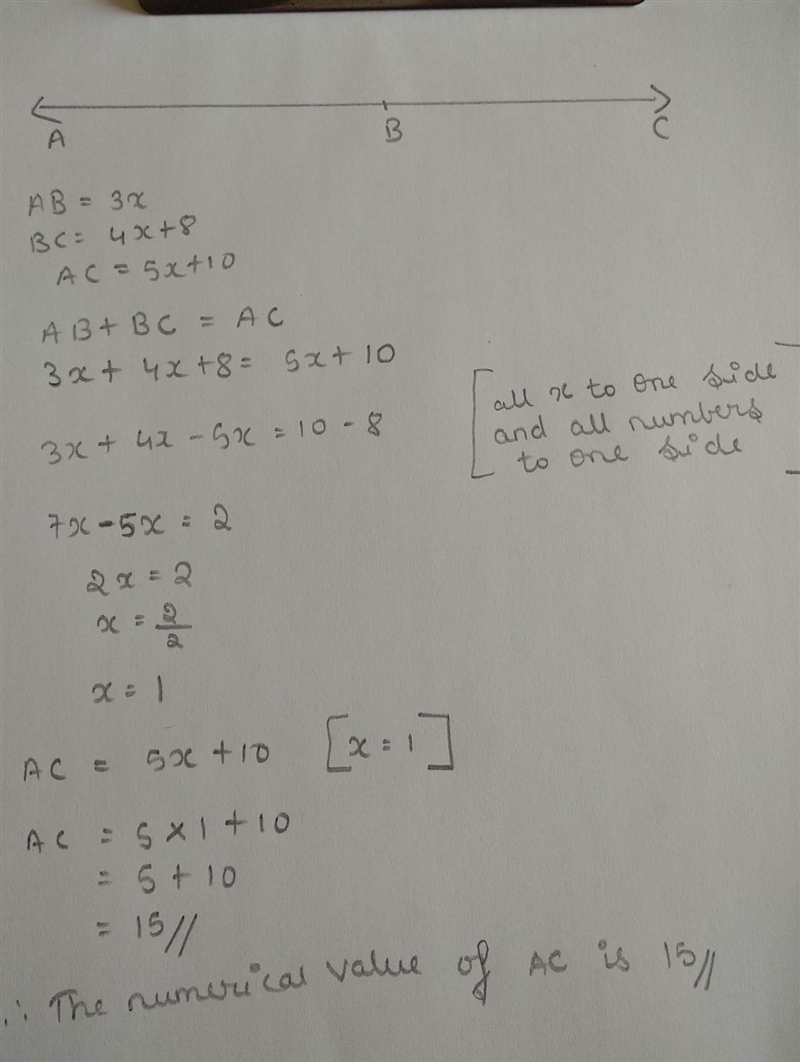 A B C
AB = 3x
BC = 4x+8
AC = 5x+10
AB+BC = AC
3x+ 4x+8= 5x+10
[all x to one side
and all numbers
to one side]
3x+ 4x-5x=10-8
7x-5x= 2
2x=2
x=2/2
x=1
AC = 5x+10 [x=1]
AC = 5×1+10
= 5+10
= 15//
∴ The numerical value of AC is 15//